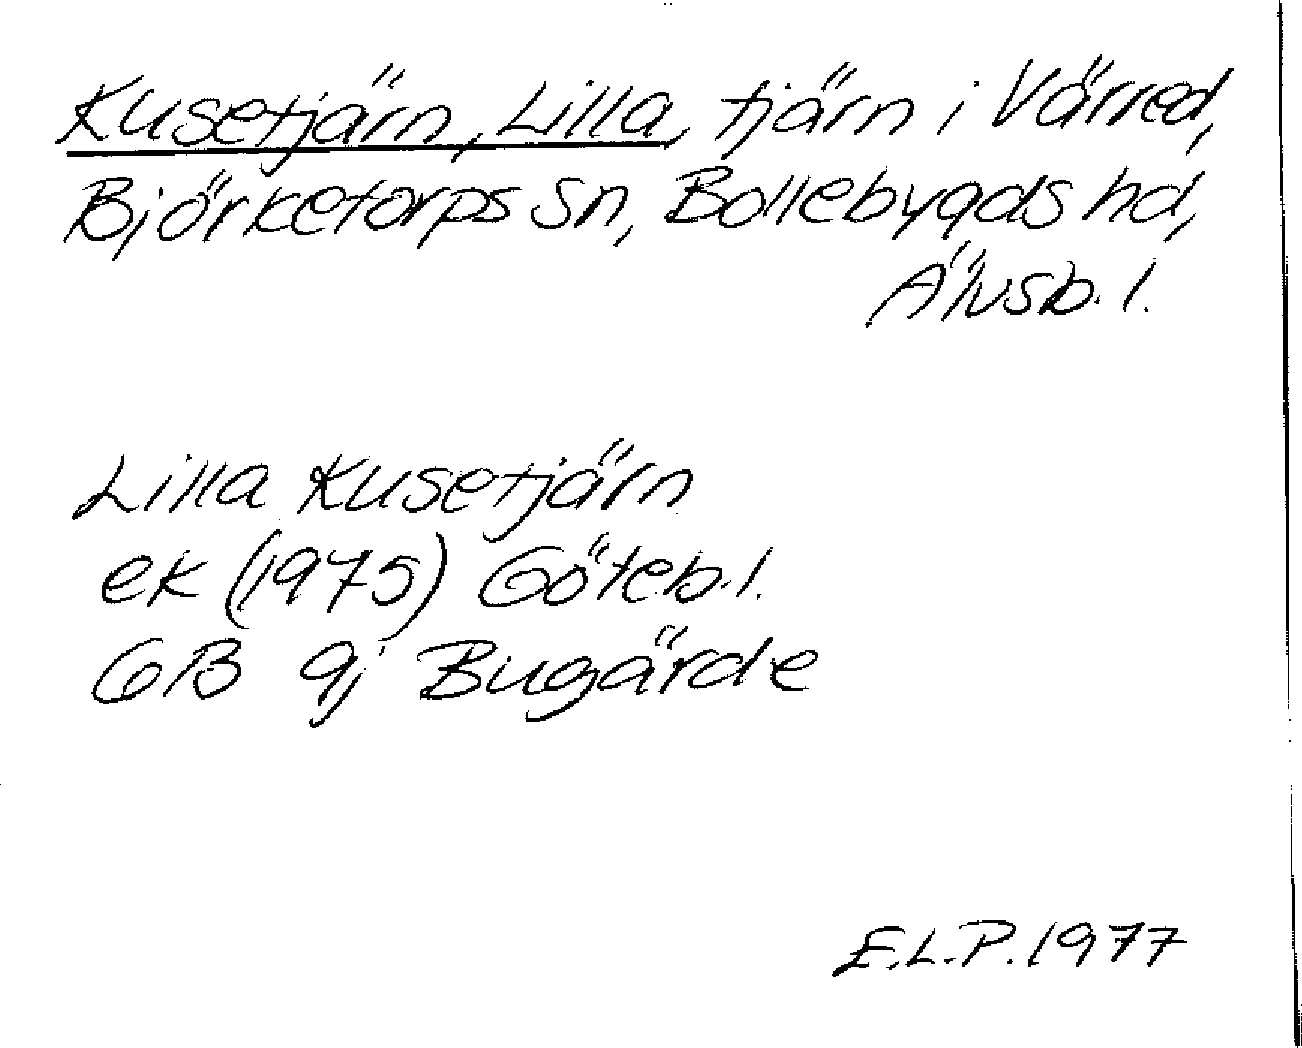 Kusetjärn, Lilla, tjärn i Värred,
Björketorps sn, Bollebygds hd,
Älvsb. l.
Lilla Kusetjärn
ek (1975) Göteb. l.
GB 9j Bugärde
E.L.P. 1977